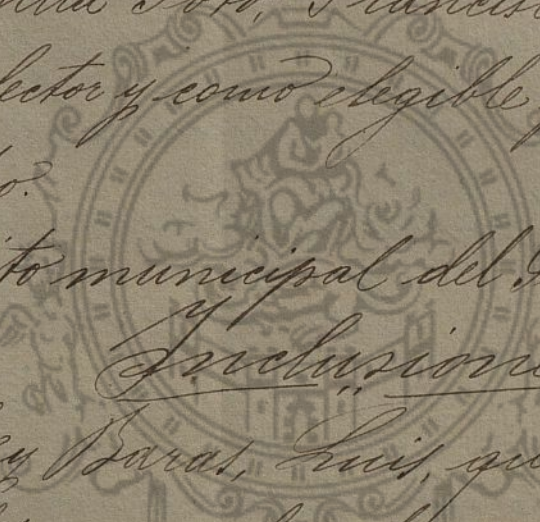 Soto, Francisc
lector y como elegible
do.
ito municipal del
y
Inclusione
ey Baras, Luis, qu